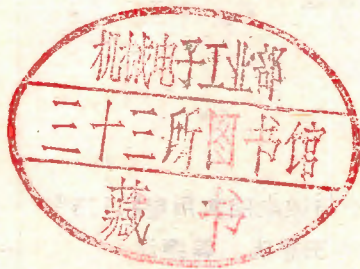 机械电子工业部
三十三所图书馆
藏书